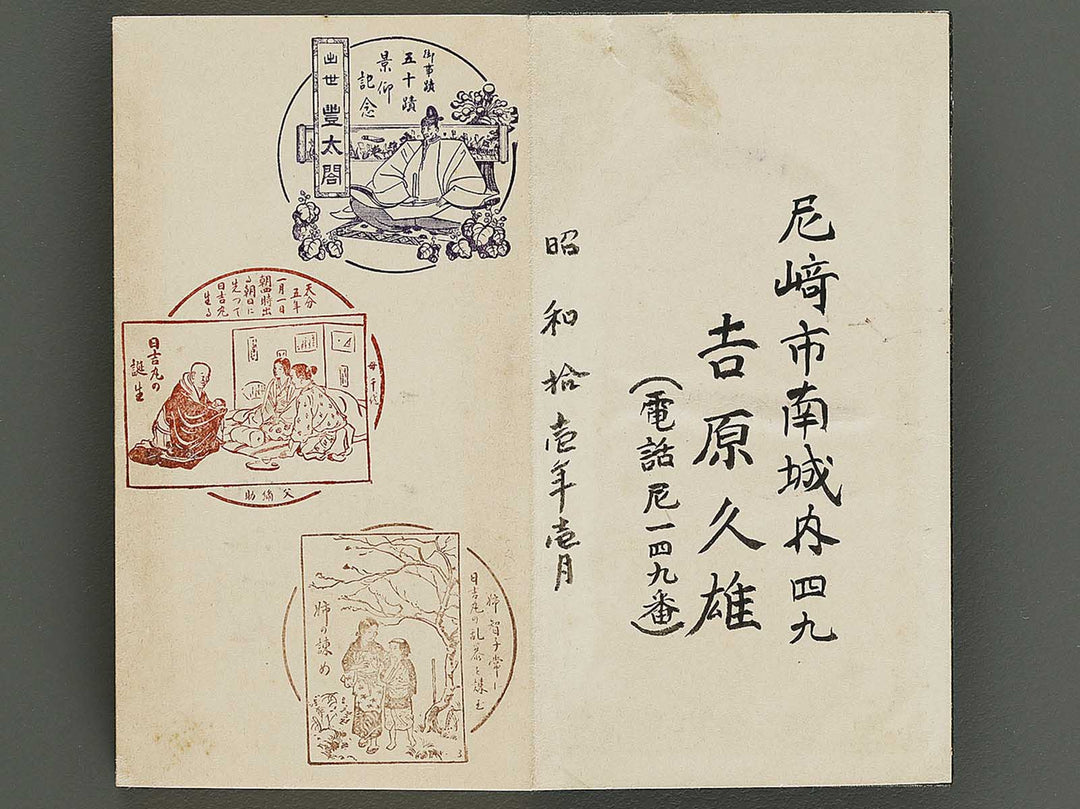 尼﨑市南城内四九
吉原久雄
(電話尼一四九番)
昭和拾壱年壱月
御事蹟
五十蹟
景仰
記念
出世豊太閤
天文
五年
一月一日
朝四時出
る朝日に
先つて
日吉丸
生る
日吉丸の
誕生
父彌助
姉智子常に
日吉丸の乱暴を
姉の諫め